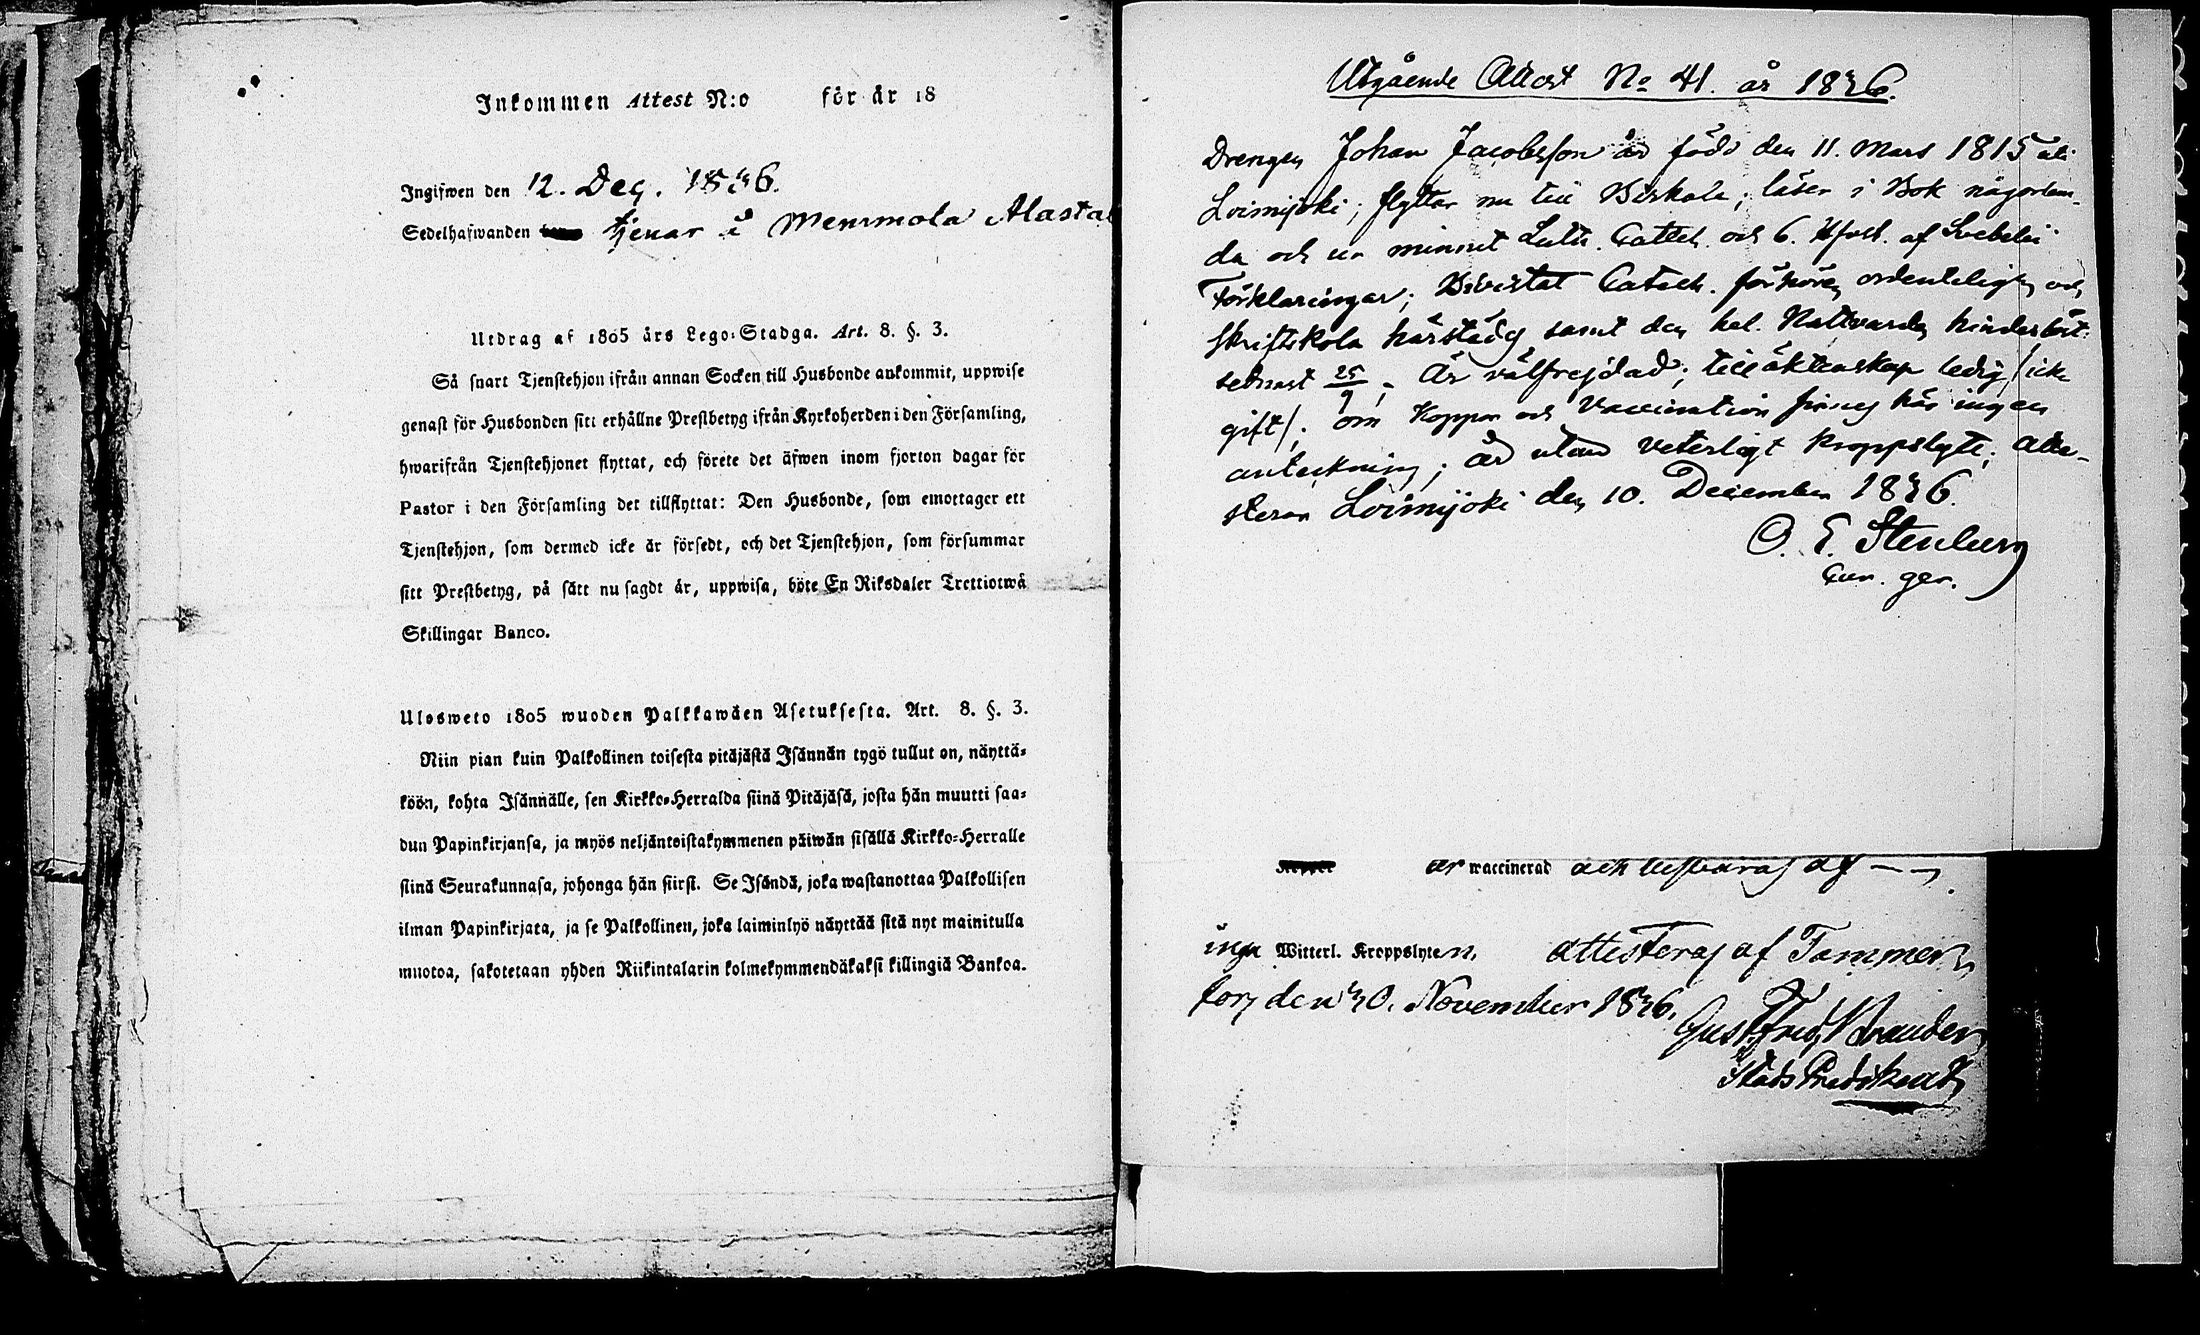 Inkommen Attest N:o för år 18
Ingifwen den 12. Dec. 1836.
Sedelhafwanden tjenar i Menmola Alasta
Utdrag af 1805 års Lego-Stadga. Art. 8. §. 3.
Så snart Tjenstehjon ifrån annan Socken till Husbonde ankommit, uppwise
genast för Husbonden sitt erhållne Prestbetyg ifrån Kyrkoherden i den Församling,
hwarifrån Tjenstehjonet flyttat, och förete det äfwen inom fjorton dagar för
Pastor i den Församling det tillflyttat: Den Husbonde, som emottager ett
Tjenstehjon, som dermed icke är försedt, och det Tjenstehjon, som försummar
sitt Prestbetyg, på sätt nu sagdt är, uppwisa, böte En Riksdaler Trettiotwå
Skillingar Banco.
Ulosweto 1805 wuoden Palkkawäen Asetuksesta. Art. 8. §. 3.
Niin pian kuin Palkollinen toisesta pitäjästä Isännän tygö tullut on, näyttä-
köön, kohta Isännälle, sen Kirkko-Herralda siinä Pitäjäsä, josta hän muutti saa-
dun Papinkirjansa, ja myös neljäntoistakymmenen päiwän sisällä Kirkko-Herralle
siinä Seurakunnasa, johonga hän siirsi. Se Isändä, joka wastanottaa Palkollisen
ilman Papinkirjata, ja se Palkollinen, joka laiminlyö näyttää sitä nyt mainitulla
muotoa, sakotetaan yhden Riikintalarin kolmekymmendäkaksi killingiä Bankoa.
Utgående Attest No 41. år 1836.
Drengen Johan Jacobsson är född den 11. Mars 1815 uti
Loimijoki; flyttar nu till Birkala; läser i Bok någorlun-
da och ur minnet Luth. Catech. och 6. Hfvst. af Svebelii
Förklaringar; Bivistat Catech. förhören ordenteligen och
skriftskola härstädes samt den hel. Nattvarden
sednast 25/9. Är välfrejdad; till äktenskap ledig /: icke
gift /: om Koppor och Vaccination finnes här ingen
anteckning; är utan veterligt kroppslyte; atte-
steras Loimijoki den 10. December 1836.
O. E. Stenberg
Cur. ger.
är waccinerad och af
inga Witterl. Kroppslyten, attesteras af Tammer-
fors den 30. November 1836.
Gust. Fred.
Stads Predikant